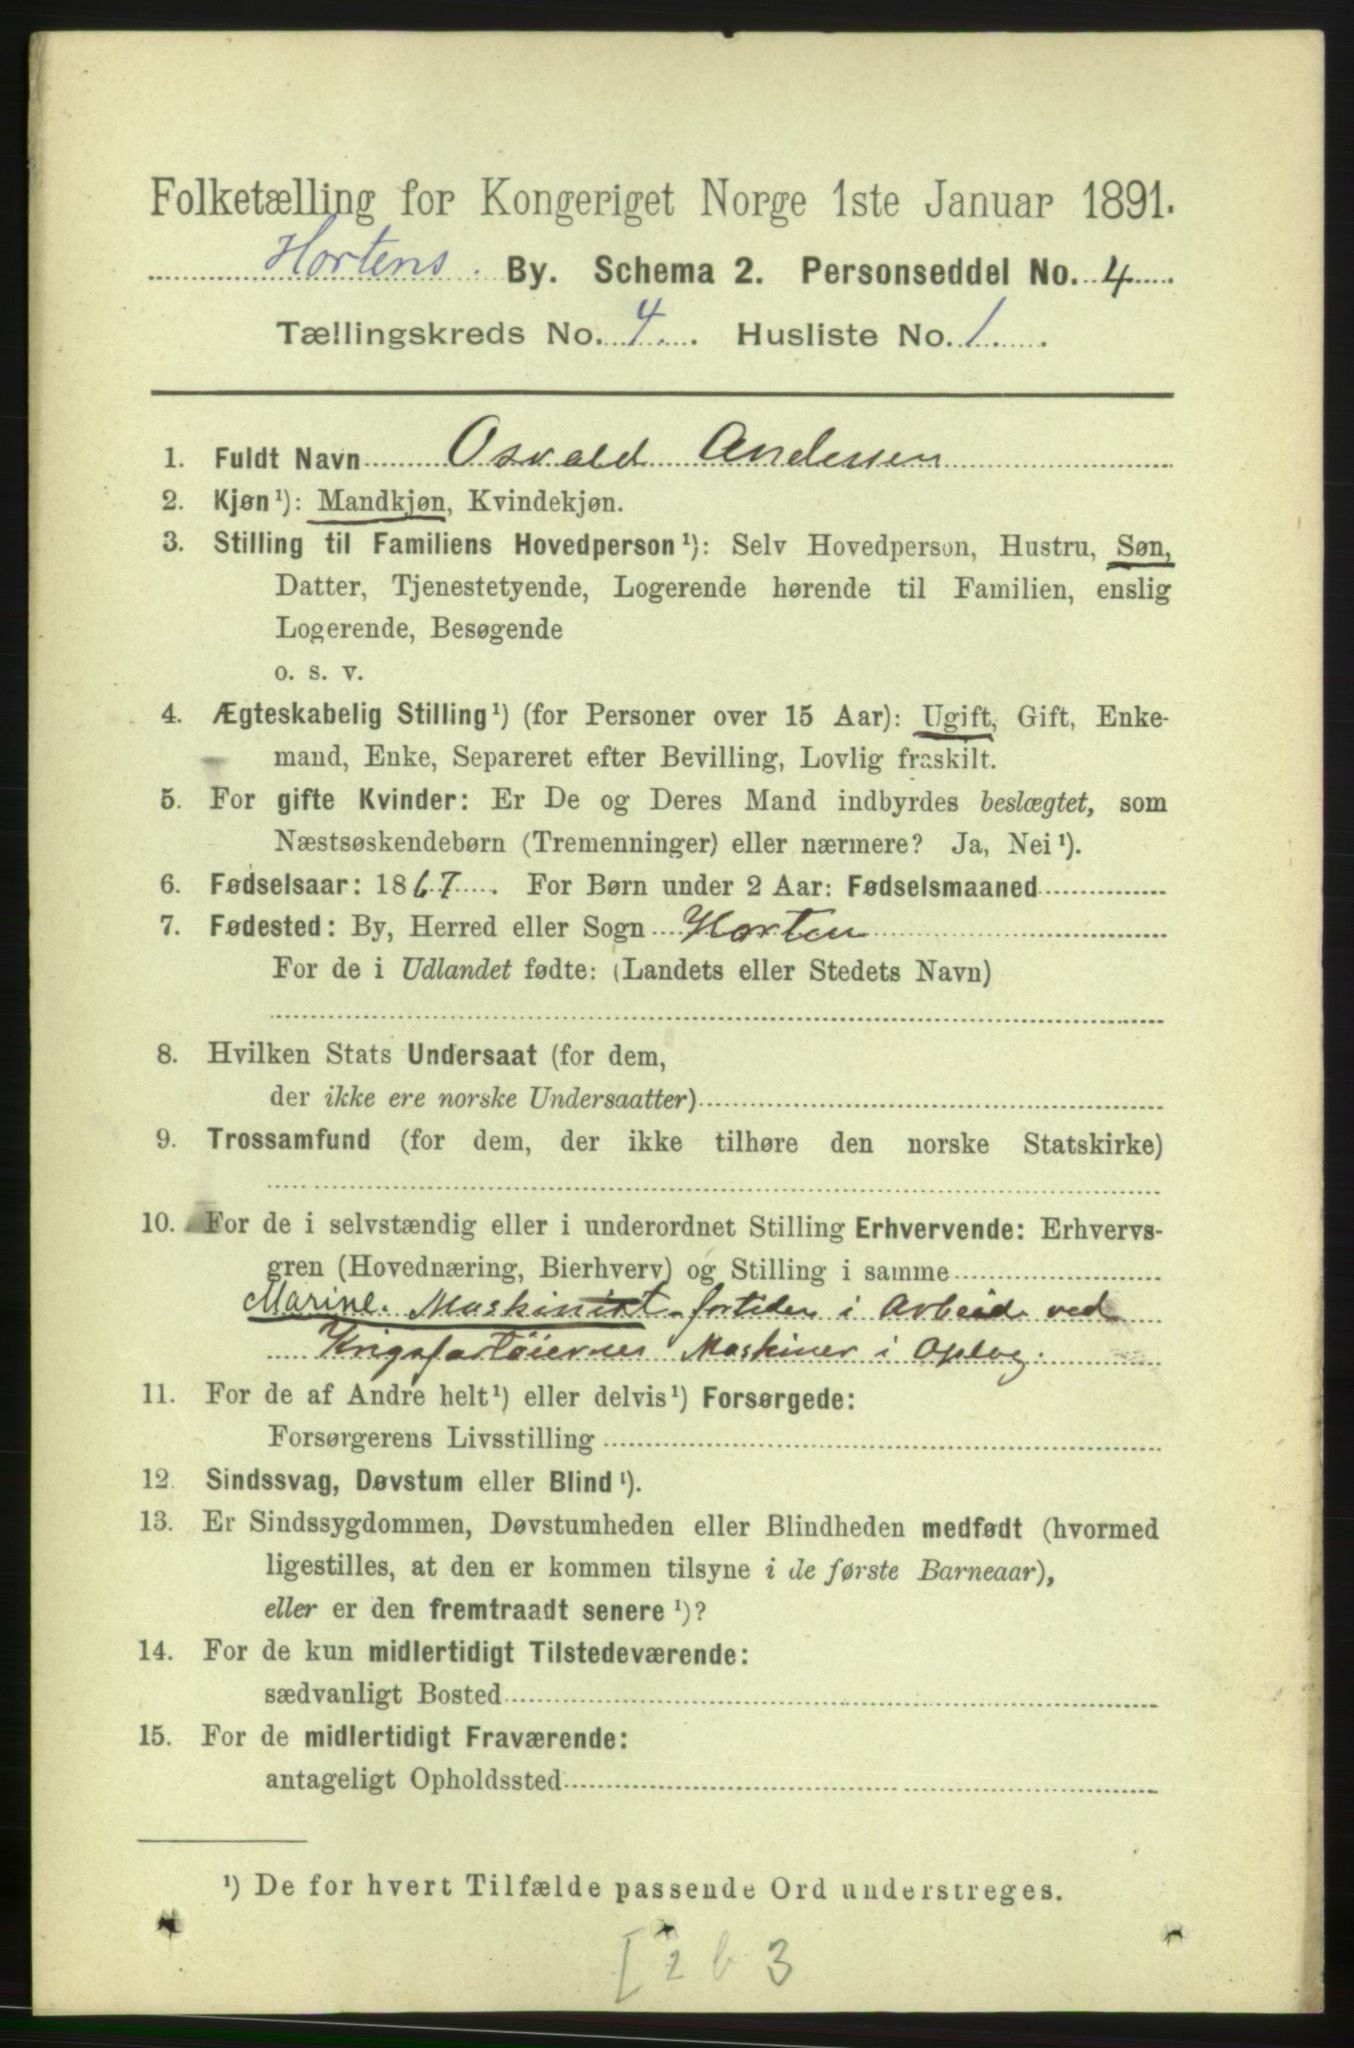 Folketælling for Kongeriget Norge 1ste Januar 1891.
Hortens. By. Schema 2. Personseddel No. 4
Tællingskreds No. 4. Husliste No. 1
1. Fuldt Navn Osvald Andersen
2. Kjøn¹): Mandkjøn, Kvindekjøn.
3. Stilling til Familiens Hovedperson¹): Selv Hovedperson, Hustru, Søn,
Datter, Tjenestetyende, Logerende hørende til Familien, enslig
Logerende, Besøgende
o. s. v.
4. Ægteskabelig Stilling¹) (for Personer over 15 Aar): Ugift, Gift, Enke-
mand, Enke, Separeret efter Bevilling, Lovlig fraskilt.
5. For gifte Kvinder: Er De og Deres Mand indbyrdes beslægtet, som
Næstsøskendebørn (Tremenninger) eller nærmere? Ja, Nei¹).
6. Fødselsaar: 1867. For Børn under 2 Aar: Fødselsmaaned
7. Fødested: By, Herred eller Sogn Horten
For de i Udlandet fødte: (Landets eller Stedets Navn)
8. Hvilken Stats Undersaat (for dem,
der ikke ere norske Undersaatter)
9. Trossamfund (for dem, der ikke tilhøre den norske Statskirke)
10. For de i selvstændig eller i underordnet Stilling Erhvervende: Erhvervs-
gren (Hovednæring, Bierhverv) og Stilling i samme
Marine. Maskinist fortiden i Arbeid ved
Krigsfartøiernes Maskiner i Oplag.
11. For de af Andre helt¹) eller delvis¹) Forsørgede:
Forsørgerens Livsstilling
12. Sindssvag, Døvstum eller Blind¹).
13. Er Sindssygdommen, Døvstumheden eller Blindheden medfødt (hvormed
ligestilles, at den er kommen tilsyne i de første Barneaar),
eller er den fremtraadt senere¹)?
14. For de kun midlertidigt Tilstedeværende:
sædvanligt Bosted
15. For de midlertidigt Fraværende:
antageligt Opholdssted
¹) De for hvert Tilfælde passende Ord understreges.
[2 b 3